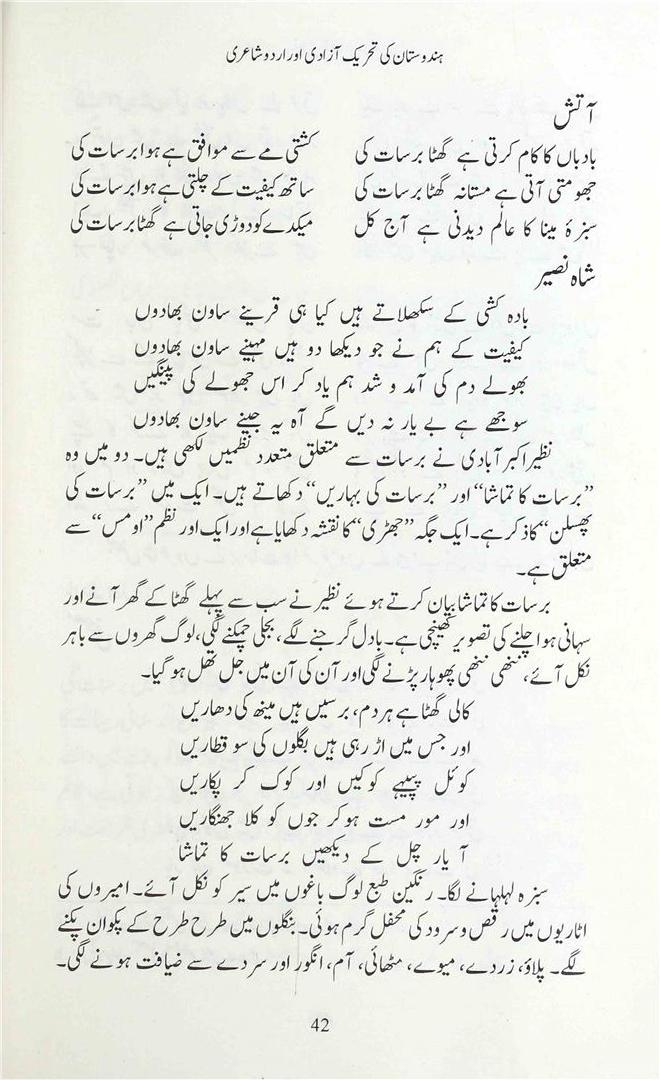 ہندوستان کی تحریک آزادی اور اردو شاعری
آتش
بادباں کا کام کرتی ہے گھٹا برسات کی کشتی مے سے موافق ہے ہوا برسات کی
جھومتی آتی ہے مستانہ گھٹا برسات کی ساتھ کیفیت کے چلتی ہے ہوا برسات کی
سبزۂ مینا کا عالم دیدنی ہے آج کل میکدے کو دوڑی جاتی ہے گھٹا برسات کی
شاہ نصیر
بادہ کشی کے سکھلاتے ہیں کیا ہی قرینے ساون بھادوں
کیفیت کے ہم نے جو دیکھا دو ہیں مہینے ساون بھادوں
بھولے دم کی آمد و شد ہم یاد کر اس جھولے کی پینگیں
سوجھے ہے بے یار نہ دیں گے آہ یہ جینے ساون بھادوں
نظیر اکبر آبادی نے برسات سے متعلق متعدد نظمیں لکھی ہیں۔ دو میں وہ
”برسات کا تماشا“ اور ”برسات کی بہاریں“ دکھاتے ہیں۔ ایک میں ”برسات کی
پھسلن“ کا ذکر ہے۔ ایک جگہ ”جھڑی“ کا نقشہ دکھایا ہے اور ایک اور نظم ”اومس“ سے
متعلق ہے۔
برسات کا تماشا بیان کرتے ہوئے نظیر نے سب سے پہلے گھٹا کے گھر آنے اور
سہانی ہوا چلنے کی تصویر کھینچی ہے۔ بادل گرجنے لگے، بجلی چمکنے لگی، لوگ گھروں سے باہر
نکل آئے، ننھی ننھی پھوہار پڑنے لگی اور آن کی آن میں جل تھل ہو گیا۔
کالی گھٹا ہے ہر دم، برسیں ہیں مینھ کی دھاریں
اور جس میں اڑ رہی ہیں بگلوں کی سو قطاریں
کوئل پپیہے کوکیں اور کوک کر پکاریں
اور مور مست ہوکر جوں کو کلا جھنگاریں
آ یار چل کے دیکھیں برسات کا تماشا
سبزہ لہلہانے لگا۔ رنگین طبع لوگ باغوں میں سیر کو نکل آئے۔ امیروں کی
اٹاریوں میں رقص و سرود کی محفل گرم ہوئی۔ بنگلوں میں طرح طرح کے پکوان پکنے
لگے۔ پلاؤ، زردے، میوے، مٹھائی، آم، انگور اور سردے سے ضیافت ہونے لگی۔
42